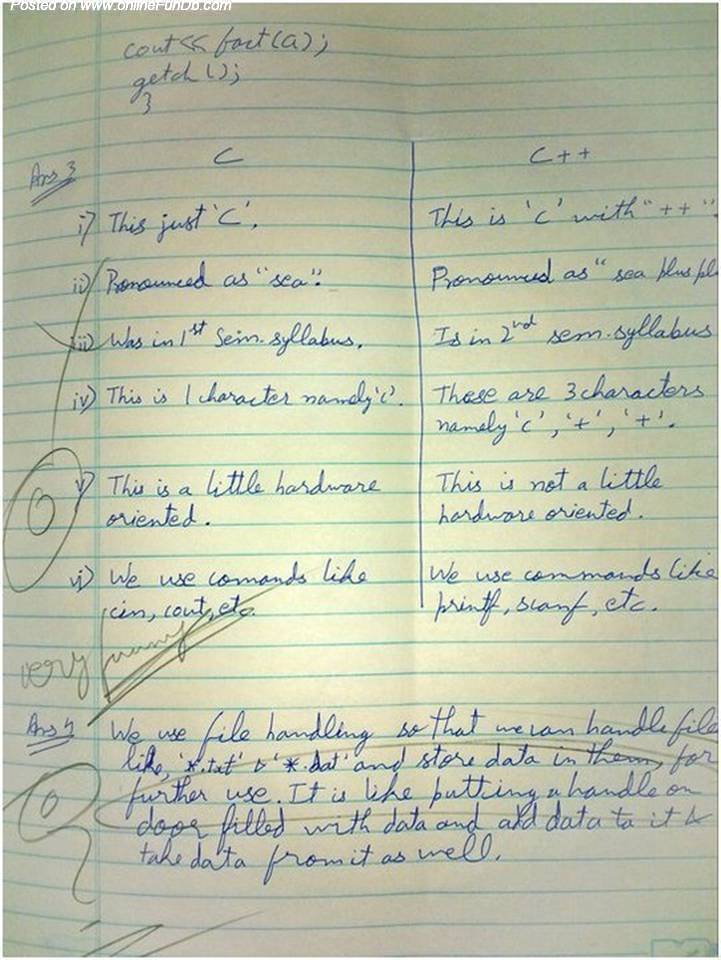 Posted on www.onlineFunDb.com
cout<< fact(a);
getch();
}
C C++
Ans 3
i) This just 'C'. This is 'C' with "++".
ii) Pronounced as "sea". Pronounced as "sea plus pl
iii) Was in 1st Sem. syllabus. Is in 2nd sem. syllabus
iv) This is 1 character namely 'c'. These are 3 characters
namely 'c', '+', '+'.
v) This is a little hardware This is not a little
oriented. hardware oriented.
0
vi) We use comands like We use commands like
cin, cout, etc. printf, scanf, etc.
very funny
Ans 4 We use file handling so that we can handle file
like, '*.txt' & '*.dat' and store data in them, for
further use. It is like putting a handle on
0
door filled with data and add data to it &
take data from it as well.